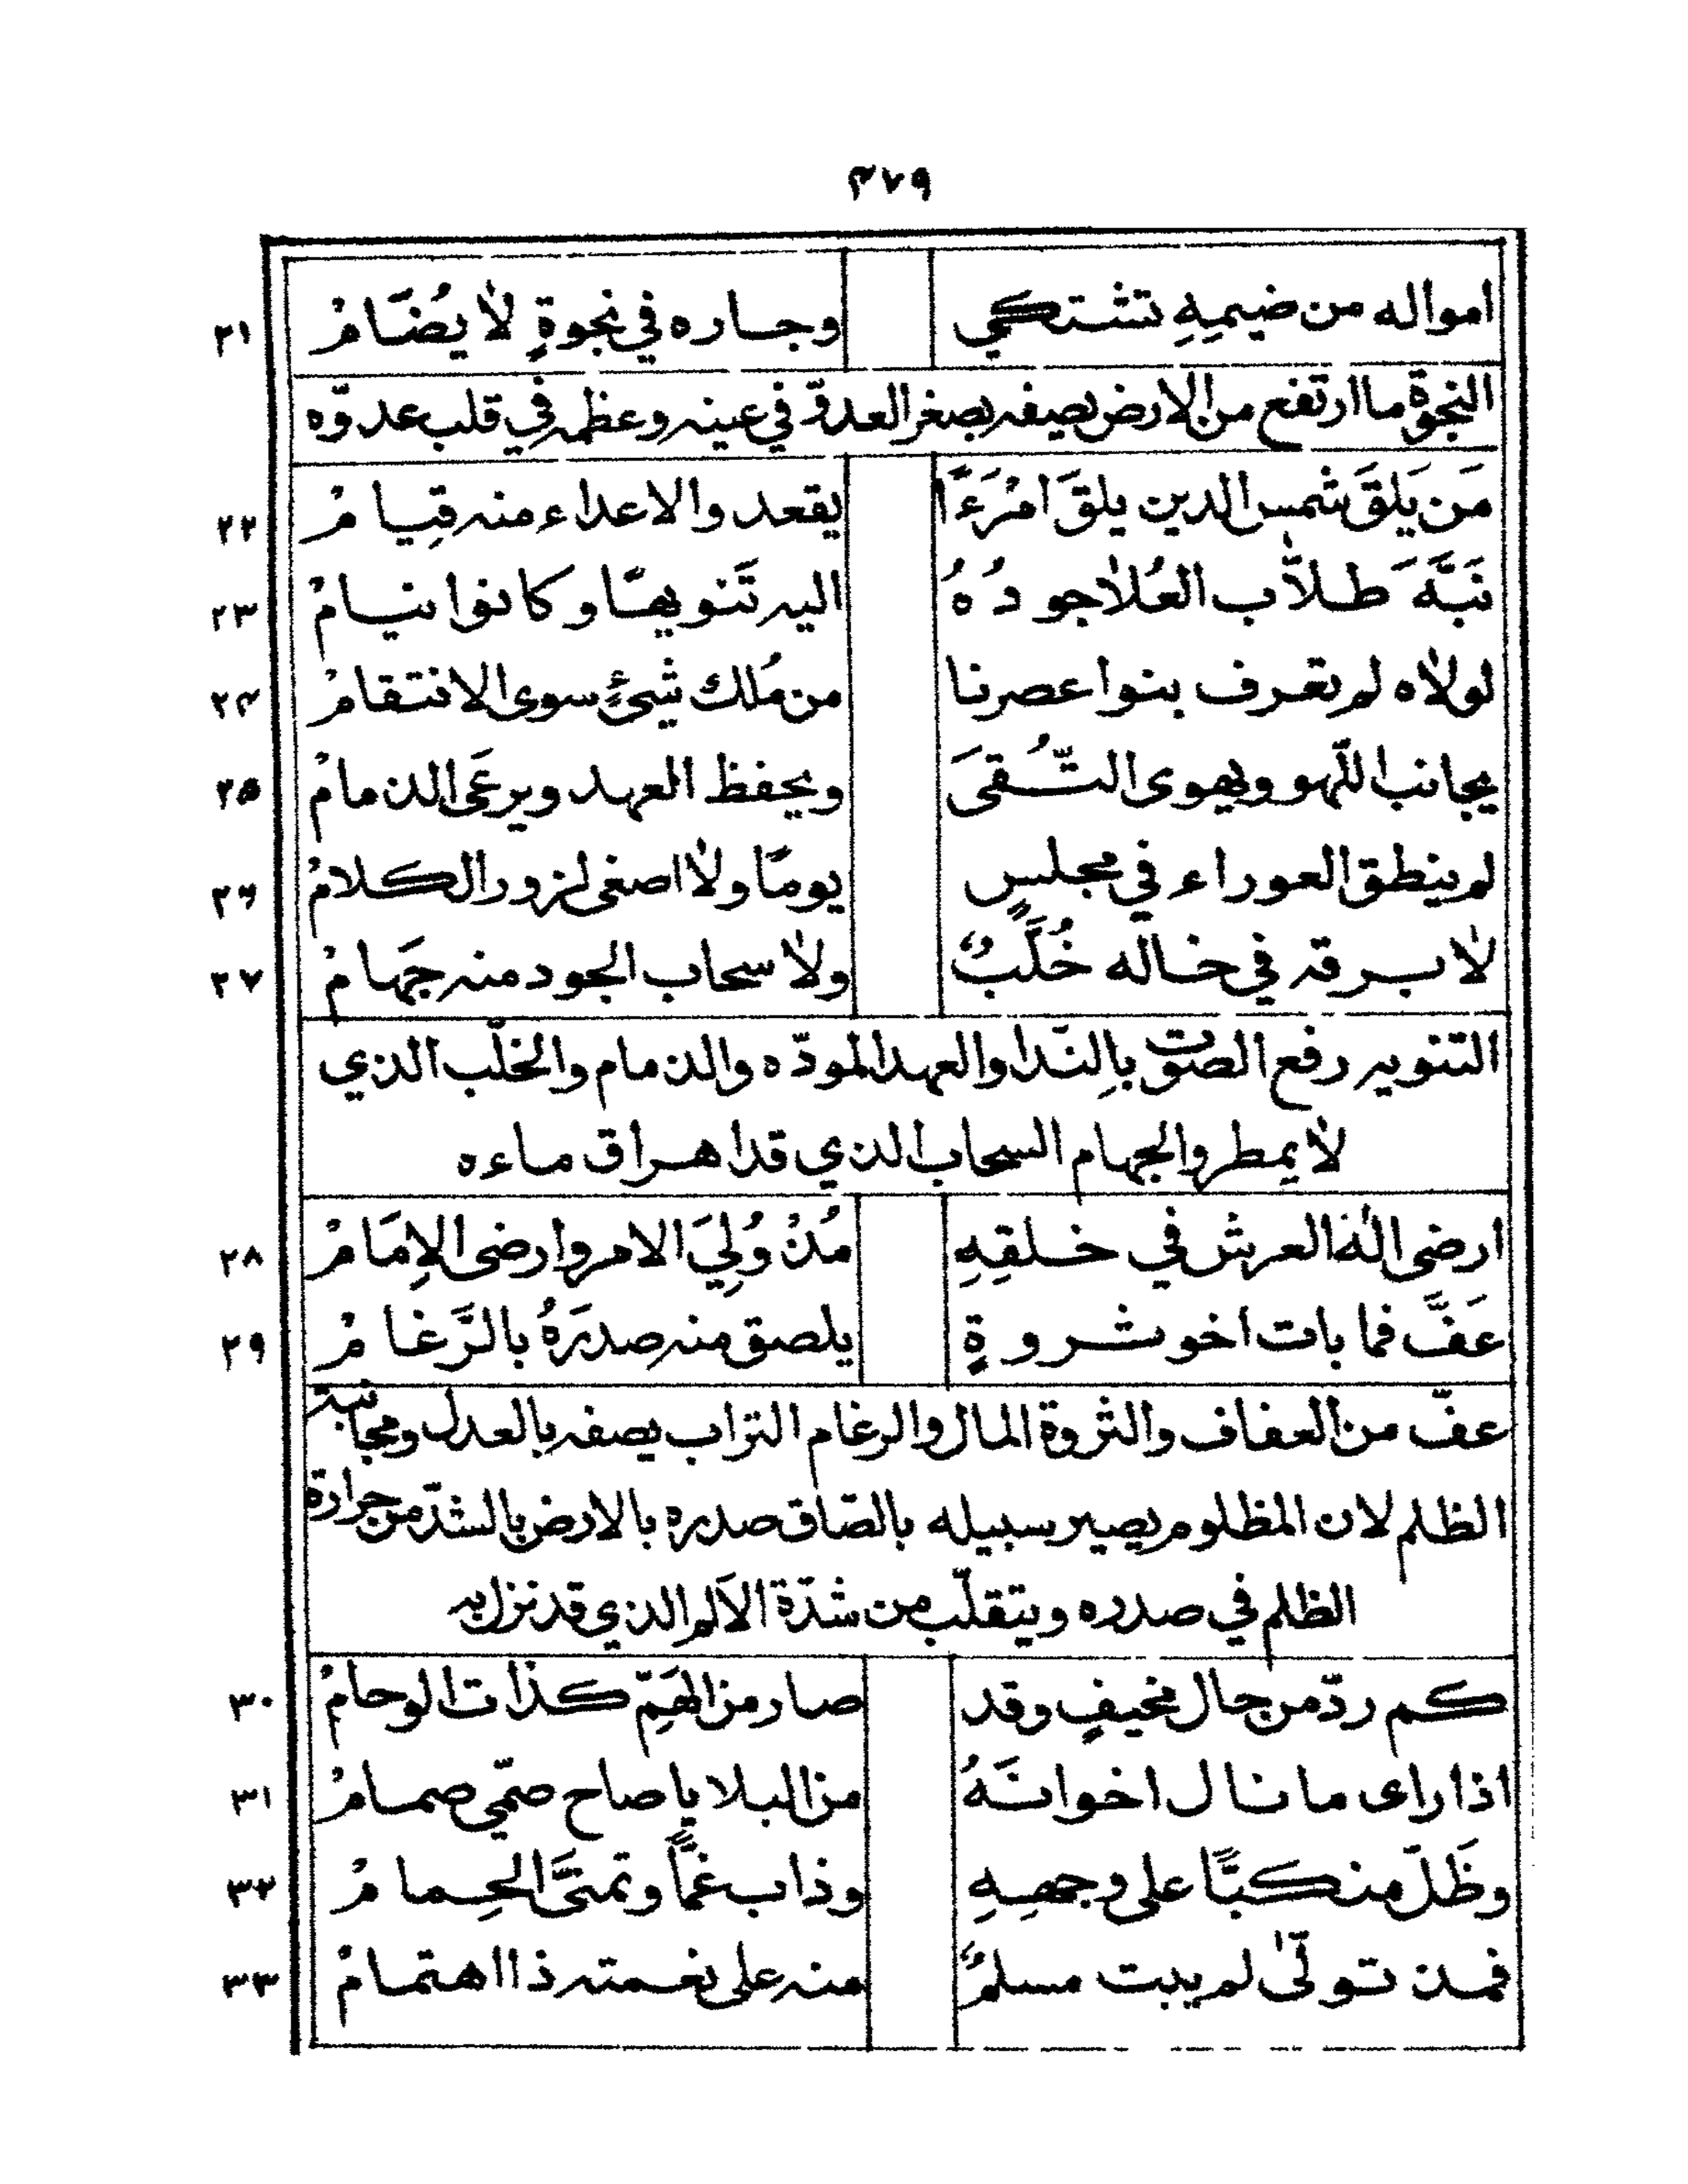 ٤٧٩
امواله من ضيمِهِ تشتكي وجاره في نجوةٍ لا يُضَامْ ٢١
النجوة ما ارتفع من الارض يصفه بصغر العدوّ في عينه وعظمه في قلب عدوّه
مَن يَلقَ شمس الدين يلقَ امْرَءًا يقعد والاعداء منه قِيامْ ٢٢
نَبَّهَ طلاّب العُلا جودُهُ اليه تَنويهًا وكانوا نيامْ ٢٣
لولاه لم تعرف بنوا عصرنا من مُلك شيئٍ سوى الانتقامْ ٢٤
يجانب اللّهو ويهوى التُّقىَ ويحفظ العهد ويرعَى الذمامْ ٢٥
لم ينطق العوراء في مجلسٍ يومًا ولا اصغى لزور الكلامْ ٢٦
لا برقه في خاله خُلَّبٌ ولا سحاب الجود منه جَهامْ ٢٧
التنويه رفع الصوت بالِنّدا والعهد المودّه والذمام والخلّب الذي
لا يمطر والجهام السحاب الذي قد اهراق ماءه
ارضى الٰه العرش في خلقِهِ مُذْ وُلِيَ الامر وارضى الاِمَامْ ٢٨
عَفَّ فما بات اخو ثروةٍ يلصق منه صدرَهُ بالرَّغامْ ٢٩
عفّ من العفاف والثروة المال والرغام التراب يصفه بالعدل ومجانبة
الظلم لان المظلوم يصير سبيله بالصّاق صدره بالارض بالشدّ من حرارة
الظلم في صدره ويتقلّب من شدّة الاَلم الذي قد نزل به
كم ردّ من جال مخيفٍ وقد صار من الهَمِّ كذات الوحامْ ٣٠
اذا راى ما نال اخوانَهُ من البلا يا صاح صمّي صمامْ ٣١
وظَلّ منكبًّا على وجهِهِ وذاب غمًّا وتمنَّى الحِمامْ ٣٢
فمذ تولّىٰ لم يبت مسلمٌ منه على نعمته ذا اهتمامْ ٣٣